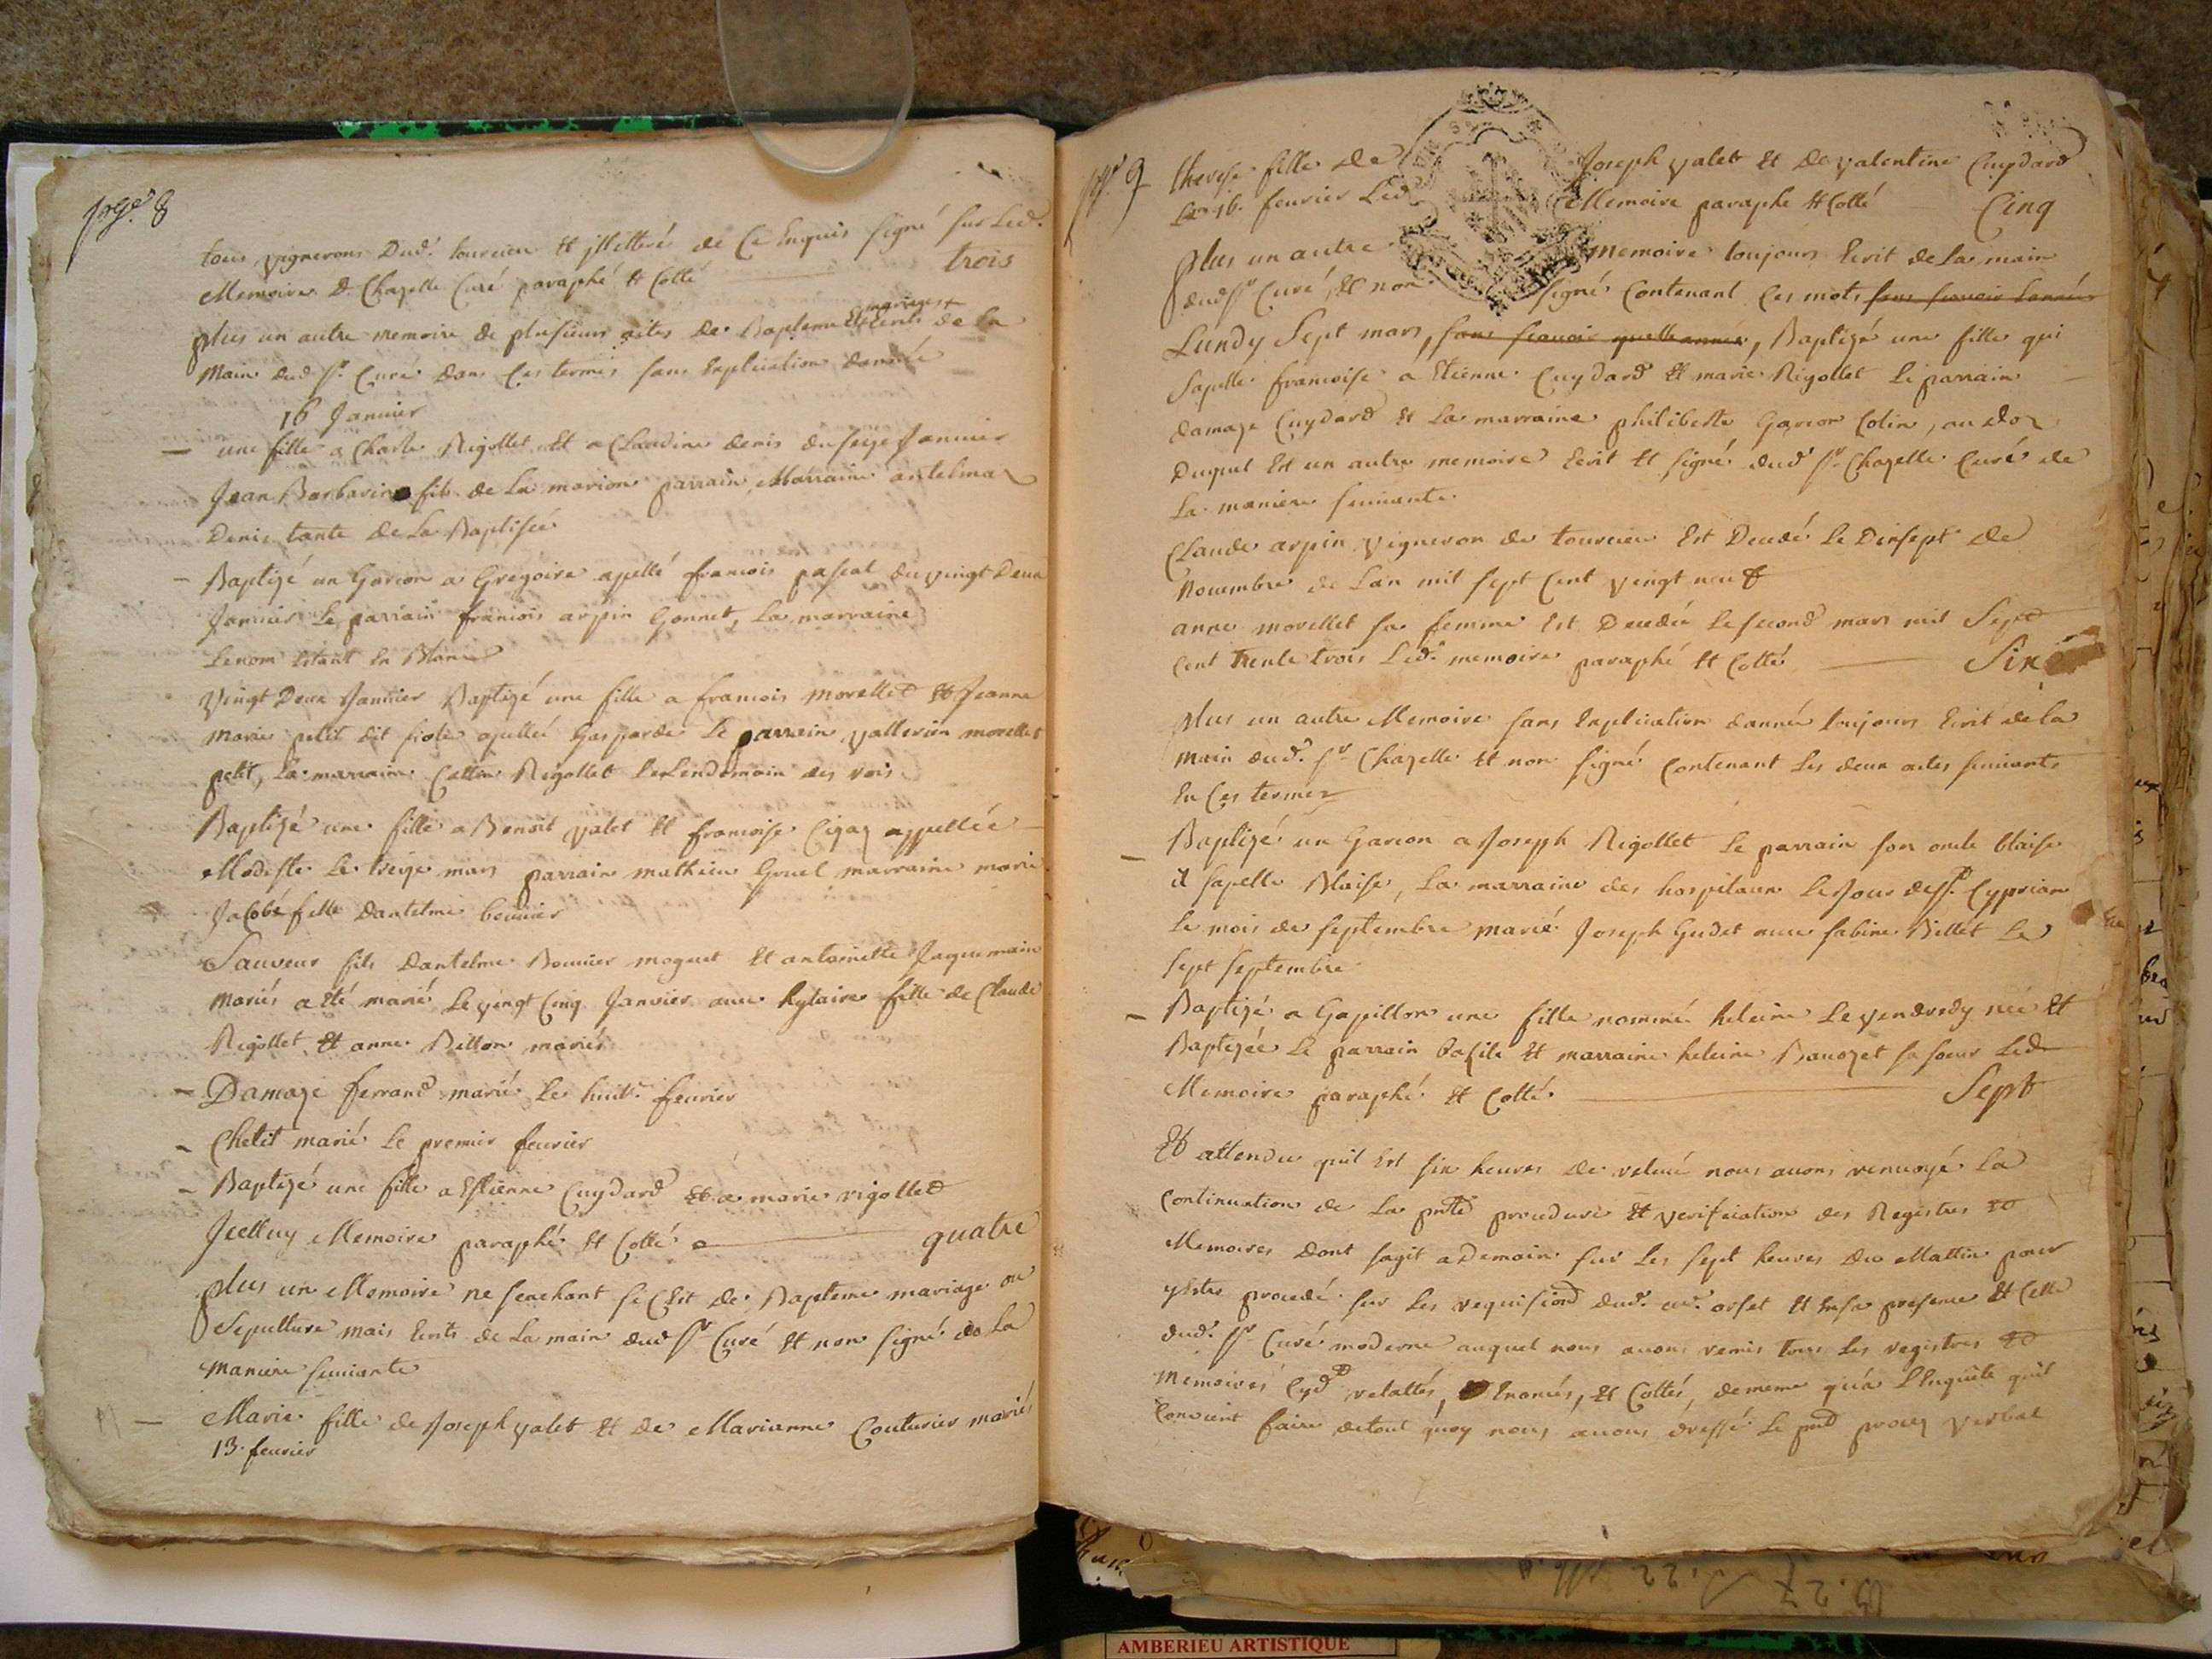 page 8
tous vignerons dud. torcieu et jllettré de ce enquis signé sur led.
Memoire D. Chapelle Curé paraphé et Cotté trois
mariages
plus un autre memoire de plusieurs actes de Bapteme et Ecrits de la
Main dud. sr. Curé dans Ces termes sans Explication dannée
16 Janvier
une fille a Charle Rigollet et a Claudine denis du seize Janvier
Jean Barbarin fils de la marion parrain Marraine antelma
Denis tante de la Baptisée
Baptizé un Garcon a Gregoire apellé francois pascal du vingt Deux
Janvier le parrain francois arpin Gonnet, la marraine
le nom Estant En Blanc
Vingt Deux Janvier Baptizé une fille a francois morellet et Jeanne
Marie petit dit fiole apellée Gasparde le parrain vallerien morellet
petit, la marraine Rigollet le lendemain des rois
Baptizé une fille a Benoit valet et francoise appellée
Modeste le treize mars parrain mathieu Gruel marraine marie
Jacobé fille dantelme
Sauveur fils dantelme Bouvier moguet et antoinette Jaquemain
Mariés a été marié le vingt Cinq Janvier avec hylaire fille de Claude
Rigollet et anne Billon mariés
Damaze ferrand marié le huit. fevrier
Chetit marié le premier fevrier
Baptizé une fille a Estienne Cuydard et a marie rigollet
Jcelluy Memoire paraphé et Cotté quatre
plus un Memoire ne scachant si C'est de Bapteme mariage ou
Sepulture mais Ecrits de la main dud sr. Curé et non signé de la
Maniere suivante
Marie fille de Joseph valet et de Marianne Couturier mariés
13. fevrier
page 9
therese fille de Joseph valet et de valentine Cuydard
le 16. fevrier Led. Memoire paraphe et Cotté Cinq
plus un autre memoire toujours Ecrit de la main
dud sr. Curé, et non signé Contenant Ces mots sans scavoir lannée
Lundy Sept mars, sans scavoir quelle année, Baptizé une fille qui
Sapelle francoise a Etienne Cuydard et marie Rigollet le parrain
damaze Cuydard et la marraine philiberte Garcon Colin, au doz
Duquel Est un autre memoire Ecrit et signé dud sr. Chapelle Curé de
la maniere suivante
Claude arpin vigneron de torcieu Est Decedé le Dixsept de
Novembre de lan mil sept Cent vingt neuf
anne morellet sa femme Est Decedée le second mars mil Sept
Cent trente trois Led. memoire paraphé et Cotté Six
plus un autre Memoire sans Explication dannée toujours Ecrit de la
main dud. sr Chapelle et non signé Contenant les deux actes suivants
En Ces termes
Baptizé un Garcon a Joseph Rigollet le parrain son oncle blaise
il sapelle Blaise, la marraine des hospitaux le Jour de st. Cyprian
le mois de septembre marié Joseph Gudet avec sabine Billet le
sept septembre
Baptizé a Gapillon une fille nommé heleine le vendredy née et
Baptizée le parrain basile et marraine heleine sa soeur Led
Memoire paraphé et Cotté Sept
Et attendu quil Est six heures de relevé nous avons renvoyé la
Continuation de la pnte procedure et verification des Registres et
Memoires dont sagit a demain sur les sept heures du Mattin pour
y Estre procedé sur les requisiond dud. orset et En sa presence et Celle
dud. sr. Curé moderne auquel nous avons remis tous les registres et
Memoires Cyd. relattés, Enoncés, et Cottés, de meme qu'a L'Enquête quil
Convient faire de tout quoy nous avons dressé le pnt procez verbal
AMBERIEU ARTISTIQUE